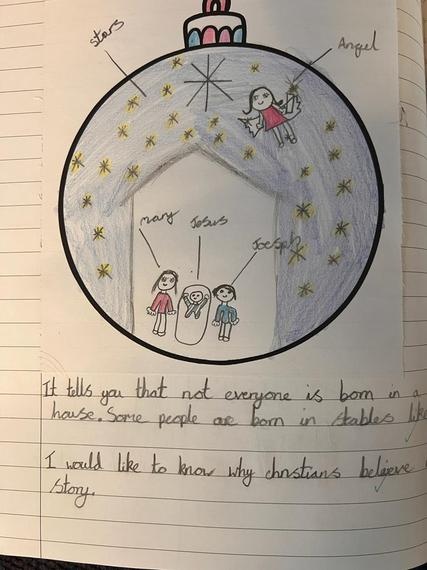 stars
Angel
mary
Jesus
Joeseph
It tells you that not everyone is born in a
house. Some people are born in stables like
I would like to know why christians believe
story.